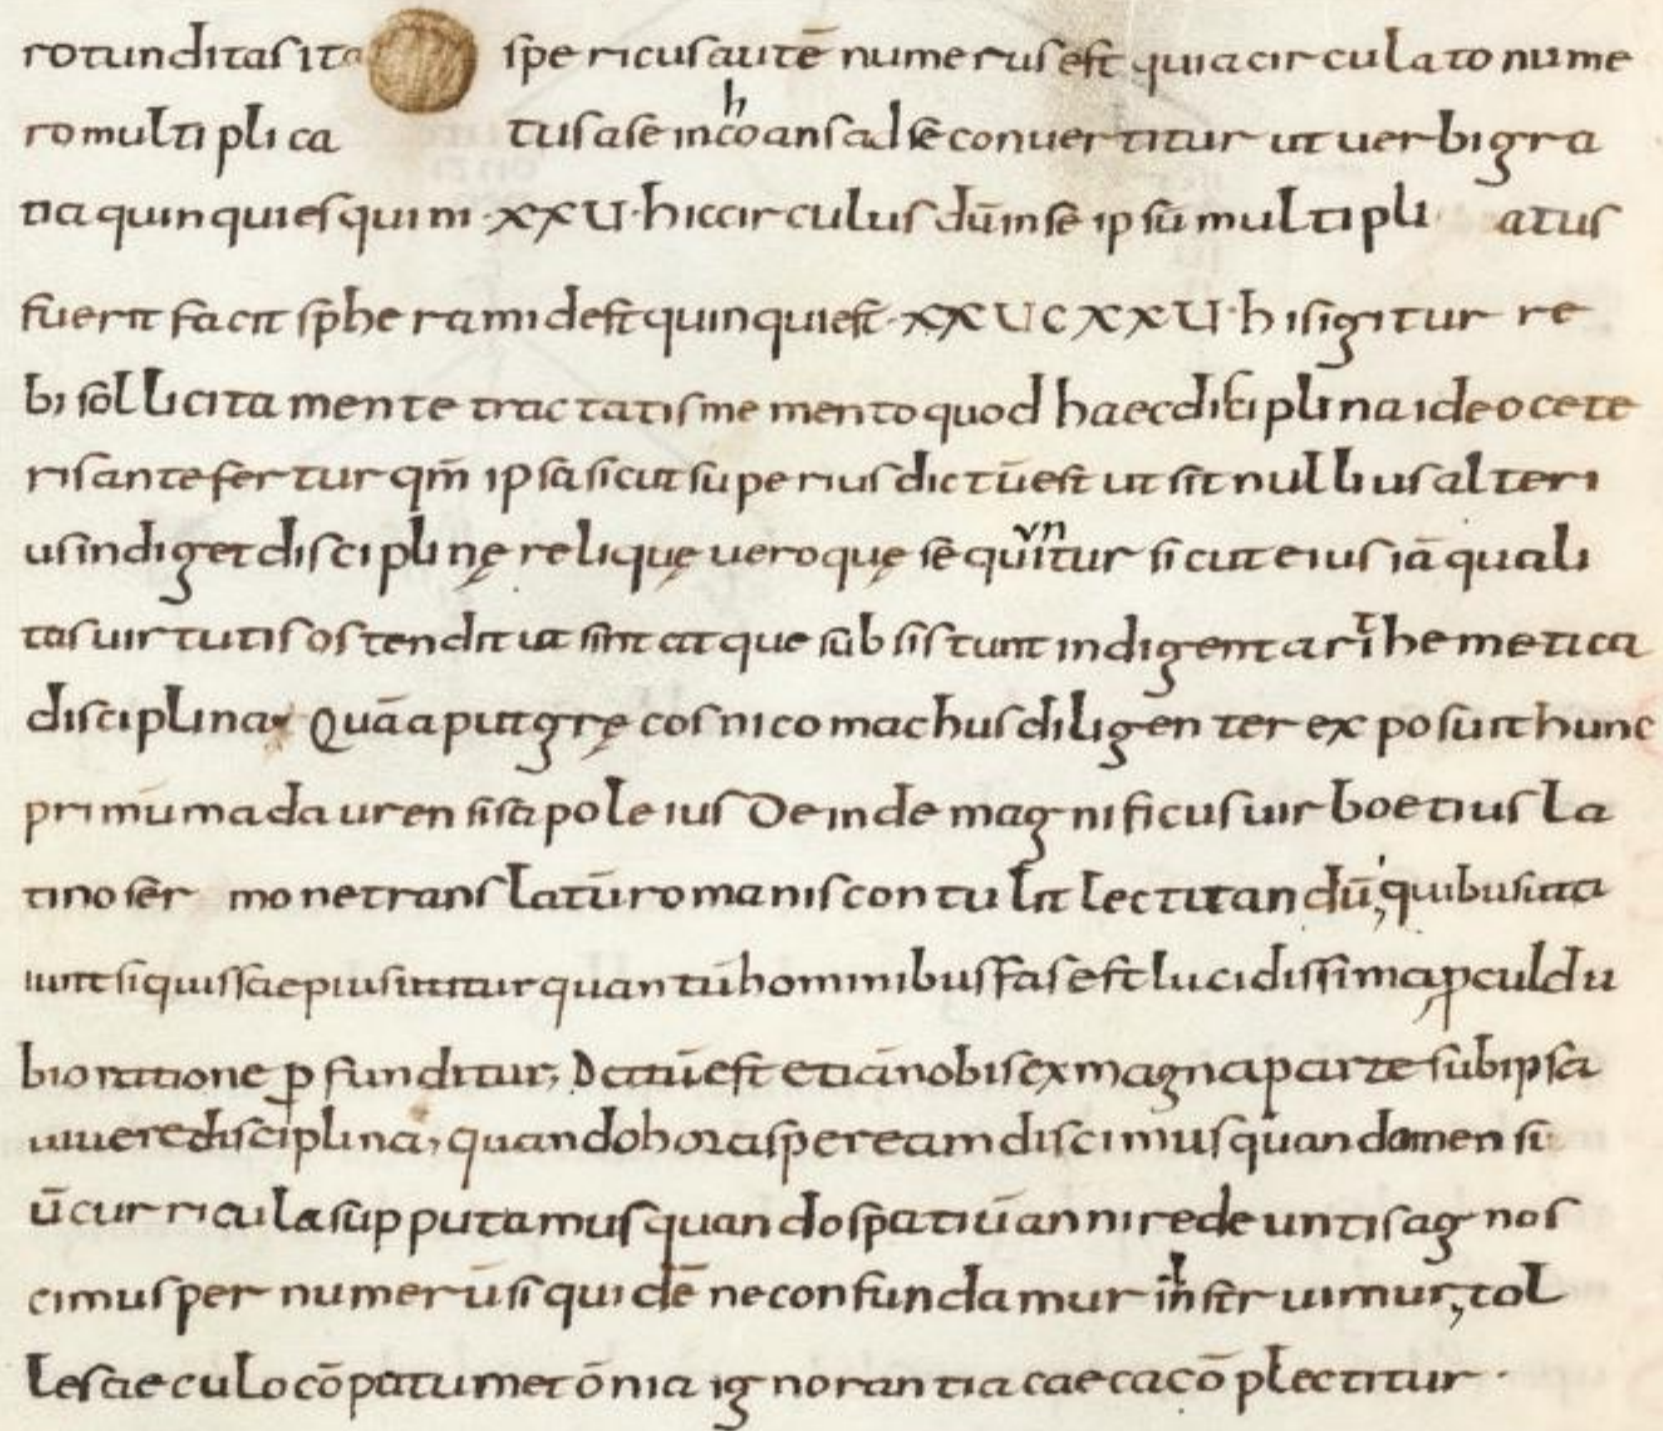 rotunditas ita spericus autē numerus est quia circulato nume
ro multiplica tus a se incohoans ad se conuertitur ut uerbi gra
tia quinquies quini ·xxU· hic circulus dū in se ipsū multipli atus
fuerit facit spheram id est quinquiesſ xxU cxxU· his igitur re
bi sollicita mente tractatis memento quod haec disciplina ideo cete
ris antefertur qm̄ ipsa sicut superius dictū est ut sit nullius alteri
us indiget disciplinę reliquę uero quę sequuntur sicut eius iā quali
tas uirtutis ostendit ut sint atque subsistunt indigent arithemetica
disciplina· Quā aput gręcos nicomachus diligenter exposuit hunc
primū madaurensis apoleius Deinde magnificus uir boetius la
tino sermone translatū romanis contulit lectitandū; quibus uta
iunt si quis saepius utitur quantū hominibus fas est lucidissima ꝓculdu
bio ratione ꝑfunditur; Datū est etiā nobis ex magna parte sub ipsa
uiuere disciplina, quando horas per eam discimus quando mensi
ū curricula supputamus quando spatiū anni redeuntis agnos
cimus per numerū siquidē ne confundamur instruimur, tol
le saeculo cōpatum et ōnia ignorantia caeca cōplectitur·